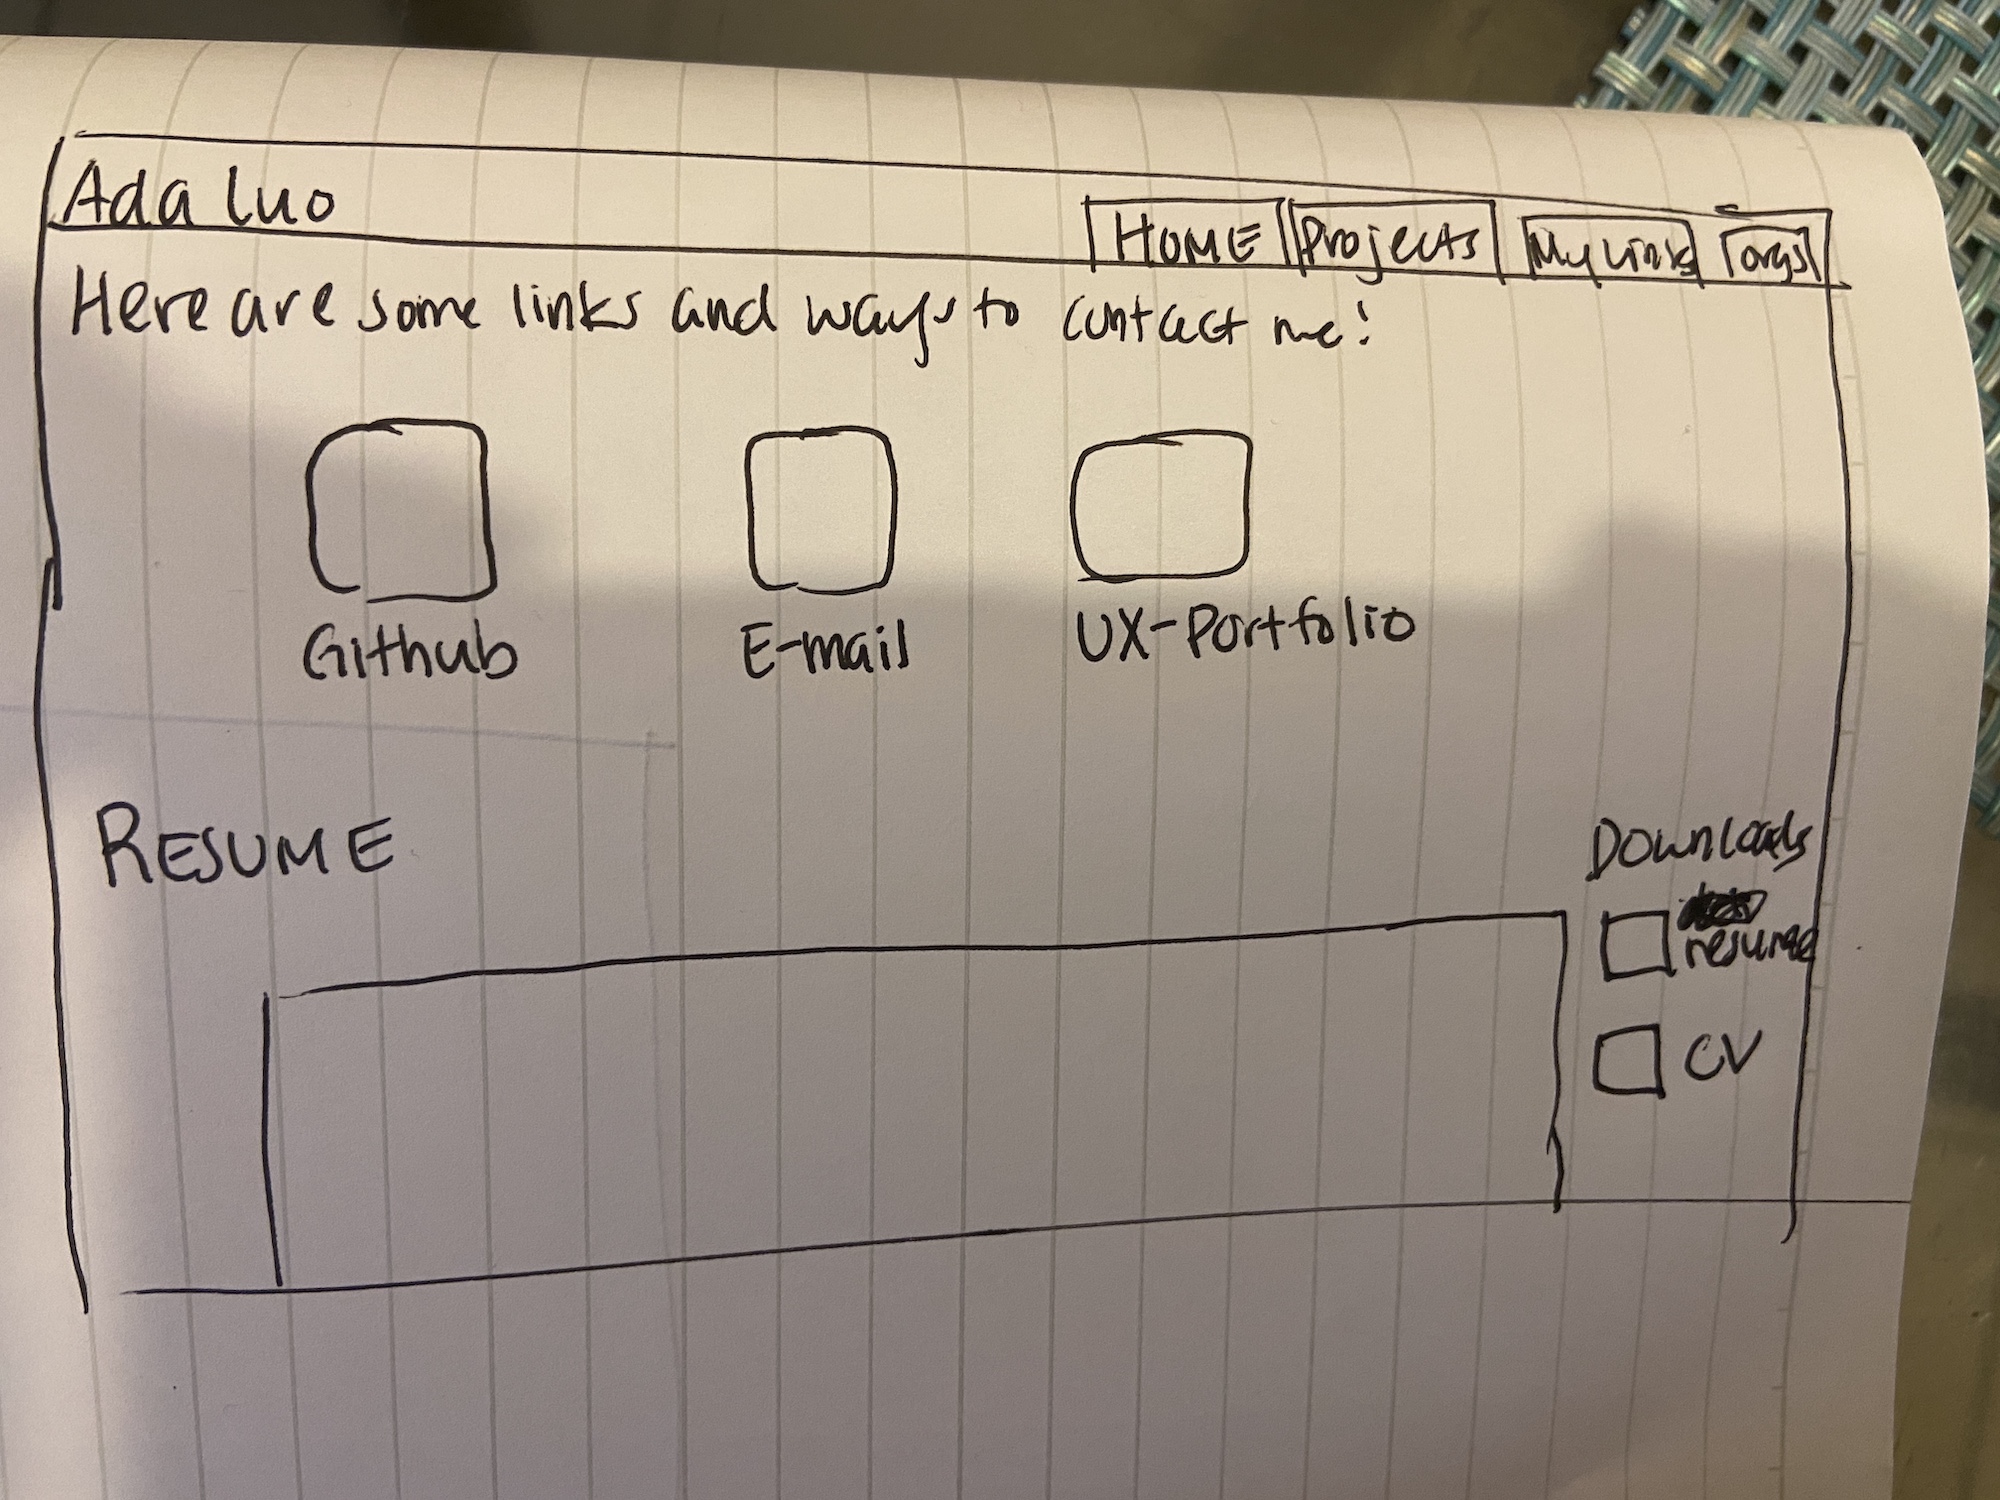 Ada Luo
HOME Projects My Links orgs
Here are some links and ways to contact me!
Github E-mail UX-Portfolio
RESUME
Downloads
resume
CV